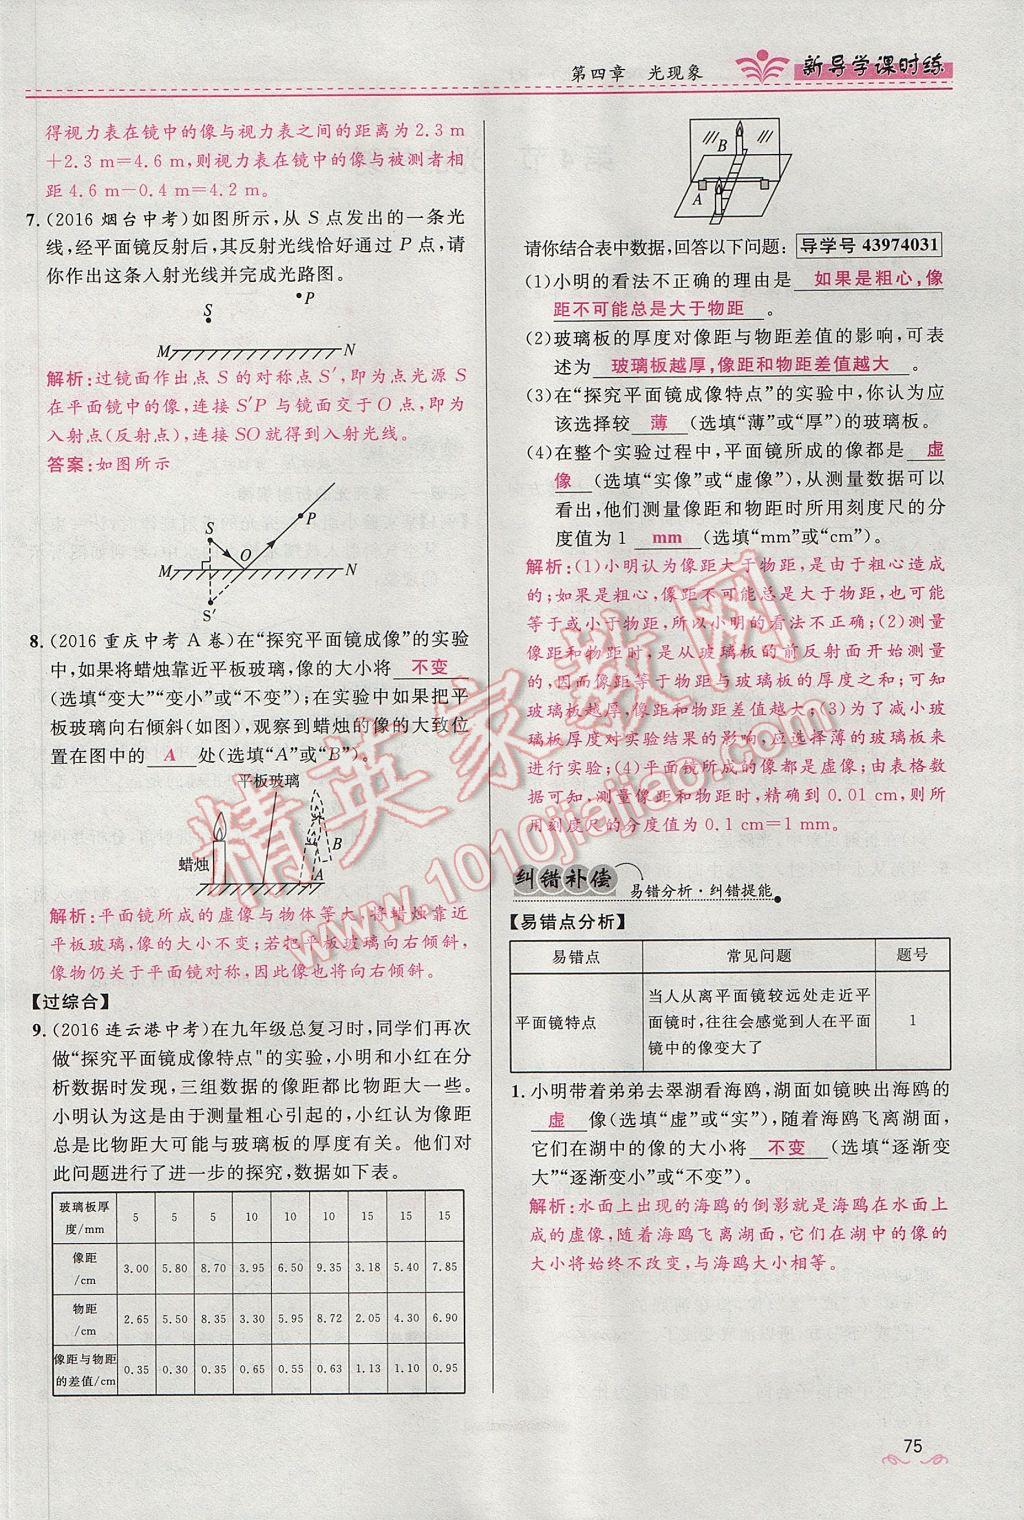 第四章　光现象
新导学课时练
得视力表在镜中的像与视力表之间的距离为2.3 m
＋2.3 m＝4.6 m,则视力表在镜中的像与被测者相
距4.6 m－0.4 m＝4.2 m。
7.(2016 烟台中考)如图所示,从S点发出的一条光
线,经平面镜反射后,其反射光线恰好通过P点,请
你作出这条入射光线并完成光路图。
P
S
M
N
解析:过镜面作出点S的对称点S′,即为点光源S
在平面镜中的像,连接S′P与镜面交于O点,即为
入射点(反射点),连接SO就得到入射光线。
答案:如图所示
P
S
O
M
N
S′
8.(2016 重庆中考A卷)在“探究平面镜成像”的实验
中,如果将蜡烛靠近平板玻璃,像的大小将 不变
(选填“变大”“变小”或“不变”);在实验中如果把平
板玻璃向右倾斜(如图),观察到蜡烛的像的大致位
置在图中的 A 处(选填“A”或“B”)。
平板玻璃
蜡烛
B
A
解析:平面镜所成的虚像与物体等大,将蜡烛靠近
平板玻璃,像的大小不变;若把平板玻璃向右倾斜,
像物仍关于平面镜对称,因此像也将向右倾斜。
【过综合】
9.(2016 连云港中考)在九年级总复习时,同学们再次
做“探究平面镜成像特点”的实验,小明和小红在分
析数据时发现,三组数据的像距都比物距大一些。
小明认为这是由于测量粗心引起的,小红认为像距
总是比物距大可能与玻璃板的厚度有关。他们对
此问题进行了进一步的探究,数据如下表。
玻璃板厚度/mm 5 5 5 10 10 10 15 15 15
像距/cm 3.00 5.80 8.70 3.95 6.50 9.35 3.18 5.40 7.85
物距/cm 2.65 5.50 8.35 3.30 5.92 8.72 2.05 4.30 6.90
像距与物距的差值/cm 0.35 0.30 0.35 0.65 0.55 0.63 1.13 1.10 0.95
B
A
请你结合表中数据,回答以下问题: 导学号 43974031
(1)小明的看法不正确的理由是 如果是粗心,像
距不可能总是大于物距 。
(2)玻璃板的厚度对像距与物距差值的影响,可表
述为 玻璃板越厚,像距和物距差值越大 。
(3)在“探究平面镜成像特点”的实验中,你认为应
该选择较 薄 (选填“薄”或“厚”)的玻璃板。
(4)在整个实验过程中,平面镜所成的像都是 虚
像 (选填“实像”或“虚像”),从测量数据可以
看出,他们测量像距和物距时所用刻度尺的分
度值为1 mm (选填“mm”或“cm”)。
解析:(1)小明认为像距大于物距,是由于粗心造成
的;如果是粗心,像距不可能总是大于物距,也可能
等于或小于物距,所以小明的看法不正确;(2)测量
像距和物距时,是从玻璃板的前反射面开始测量
的,因而像距等于物距与玻璃板的厚度之和;可知
玻璃板越厚,像距和物距差值越大;(3)为了减小玻
璃板厚度对实验结果的影响,应选择薄的玻璃板来
进行实验;(4)平面镜所成的像都是虚像;由表格数
据可知,测量像距和物距时,精确到0.01 cm,则所
用刻度尺的分度值为0.1 cm＝1 mm。
纠错补偿 易错分析·纠错提能
【易错点分析】
易错点 常见问题 题号
平面镜特点 当人从离平面镜较远处走近平面镜时,往往会感觉到人在平面镜中的像变大了 1
1.小明带着弟弟去翠湖看海鸥,湖面如镜映出海鸥的
虚 像(选填“虚”或“实”),随着海鸥飞离湖面,
它们在湖中的像的大小将 不变 (选填“逐渐变
大”“逐渐变小”或“不变”)。
解析:水面上出现的海鸥的倒影就是海鸥在水面上
成的虚像,随着海鸥飞离湖面,它们在湖中的像的
大小将始终不改变,与海鸥大小相等。
精英家教网
www.1010jiajiao.com
75